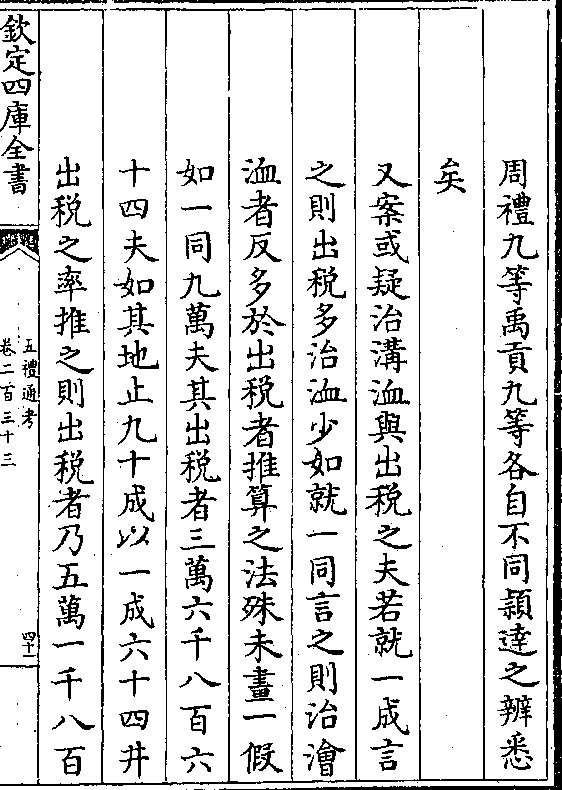 周禮九等禹貢九等各自不同穎達之辨悉
矣
又案或疑治溝洫與出税之夫若就一成言
之則出税多治洫少如就一同言之則治澮
洫者反多於出税者推算之法殊未畫一假
如一同九萬夫其出税者三萬六千八百六
十四夫如其地止九十成以一成六十四井
出税之率推之則出税者乃五萬一千八百
欽定四庫全書
五禮通考
卷二百三十三
四十一